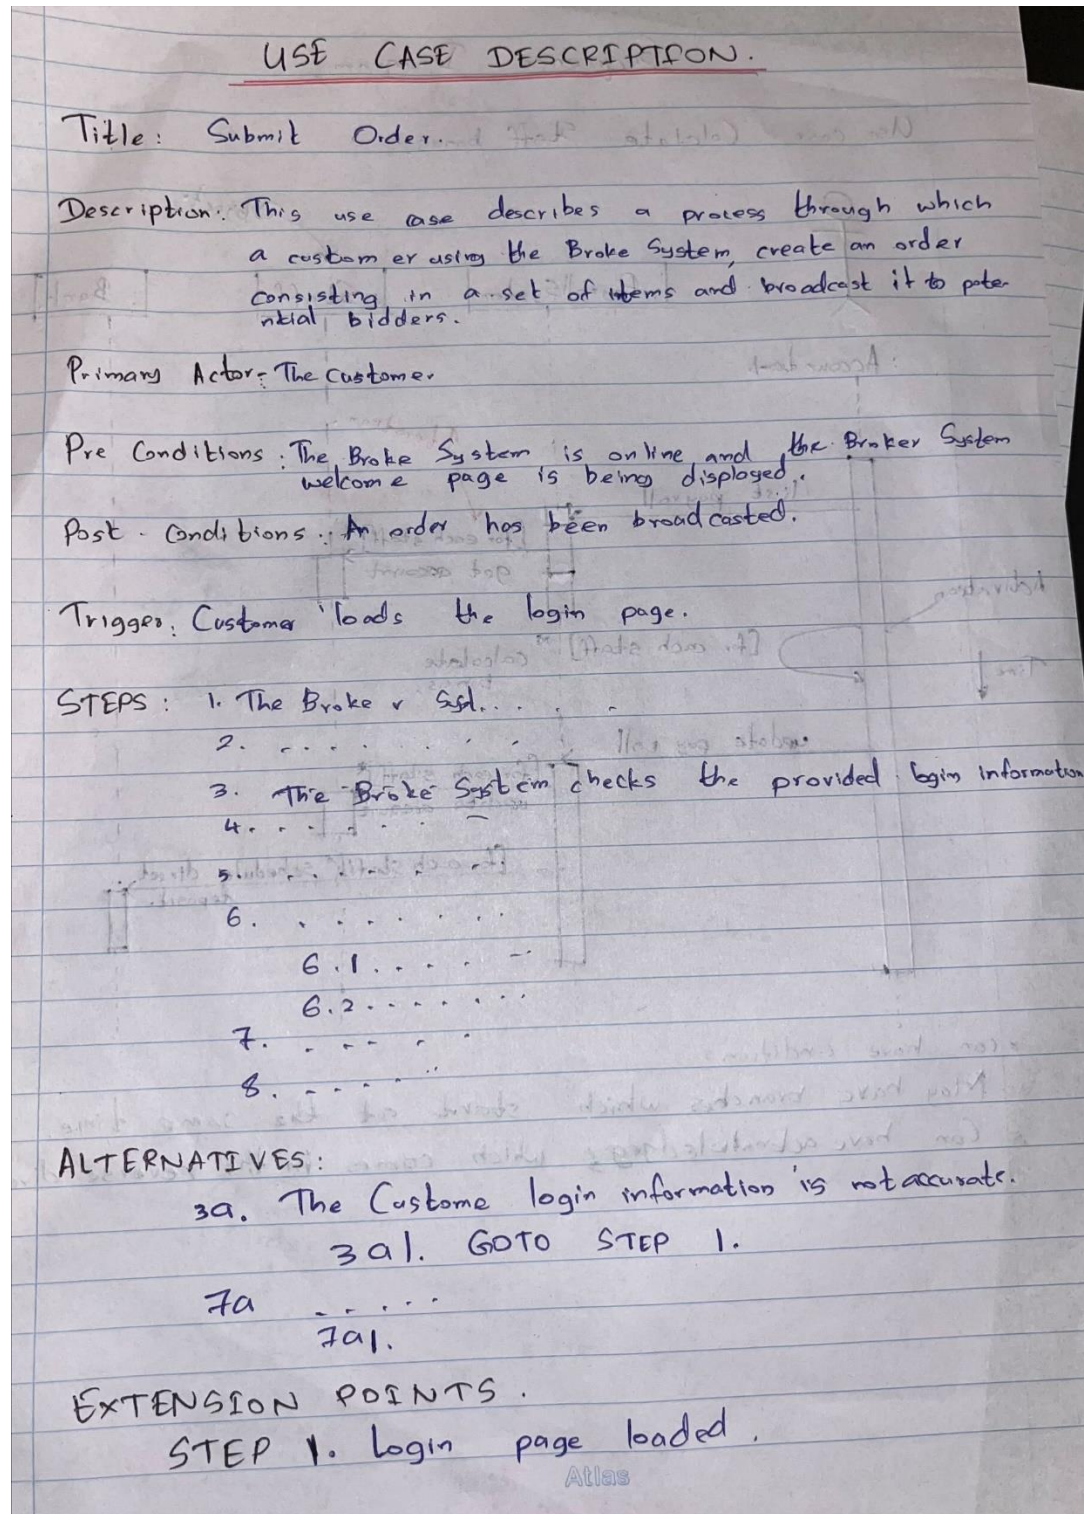 USE CASE DESCRIPTION.
Title: Submit Order.
Description: This use case describes a process through which
a customer using the Broke System, create an order
consisting in a set of items and broadcast it to pote-
ntial bidders.
Primary Actor: The Customer.
Pre Conditions: The Broke System is online and the Broker System
welcome page is being displayed.
Post-Conditions: An order has been broadcasted.
Trigger: Customer loads the login page.
STEPS: 1. The Broker Syst. . . . .
2. . . . . . . . .
3. The Broke System checks the provided login information
4. . . . . . .
5. . . . . . .
6. . . . . . . .
6.1. . . . . .
6.2. . . . . . . .
7. . - - . .
8. . . . . . .
ALTERNATIVES:
3a. The Custome login information is not accurate.
3a1. GOTO STEP 1.
7a . . . . .
7a1.
EXTENSION POINTS.
STEP 1. Login page loaded.
Atlas